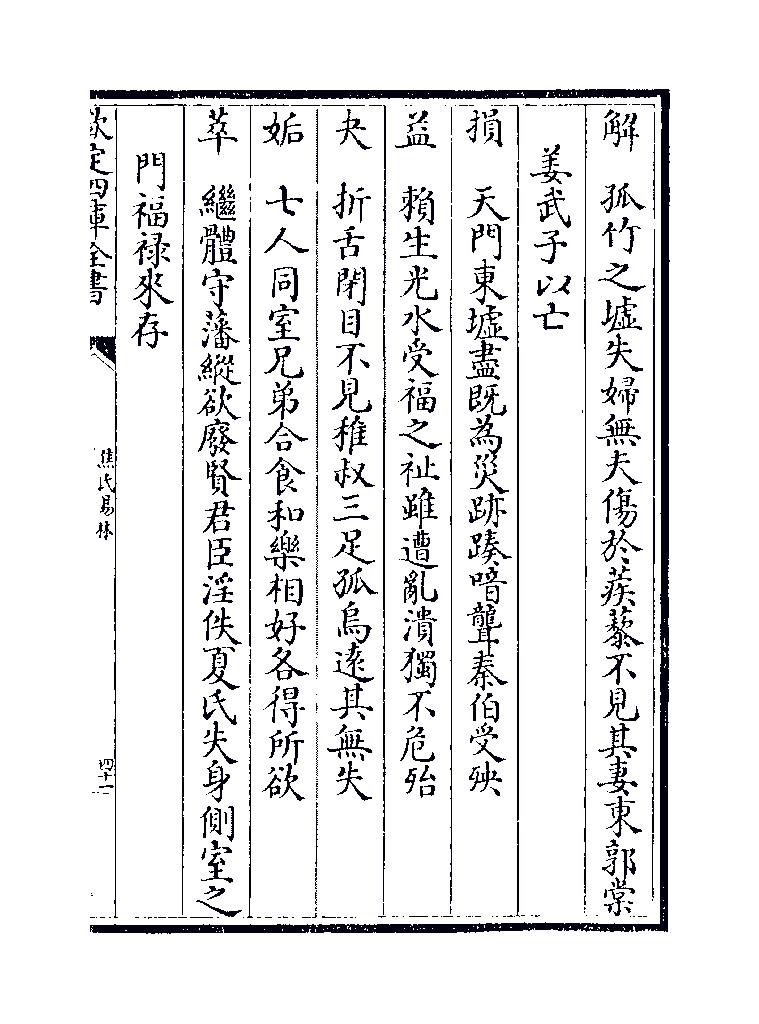 解　孤竹之墟失婦無夫傷於蒺藜不見其妻東郭棠
姜武子以亡
損　天門東墟盡既為災跡踳喑聾秦伯受殃
益　賴生光水受福之祉雖遭亂潰獨不危殆
夬　折舌閉目不見稚叔三足孤烏遠其無失
姤　七人同室兄弟合食和樂相好各得所欲
萃　繼體守藩縱欲廢賢君臣淫佚夏氏失身側室之
門福祿來存
欽定四庫全書
焦氏易林
四十一